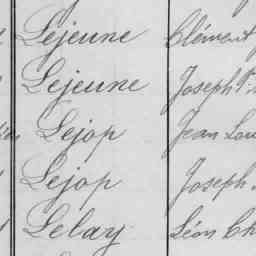 Lejeune Clément
Lejeune Joseph
Lejop Jean
Lejop Joseph
Lelay Léon